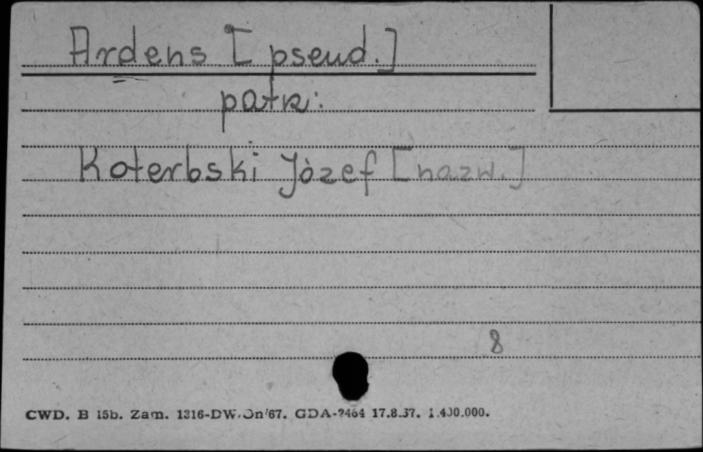 Ardens [pseud.]
patrz:
Koterbski Józef [nazw.]
8
CWD. B 15b. Zam. 1316-DW.On/67. GDA-2464 17.8.67. 1.400.000.